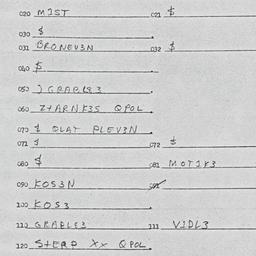 020 MIST 021 $
030 $
031 BRONEV3N 032 $
040 $
050 ) GRABLE3 3
060 Z+ARNK3S QPOL
070 $ OLAT PLEV3N
071 $ 072 $
080 $ 081 MOTIK3
090 KOS3N
100 KOS3
110 GRABLE3 111 VIDL3
120 S+ERP XX QPOL